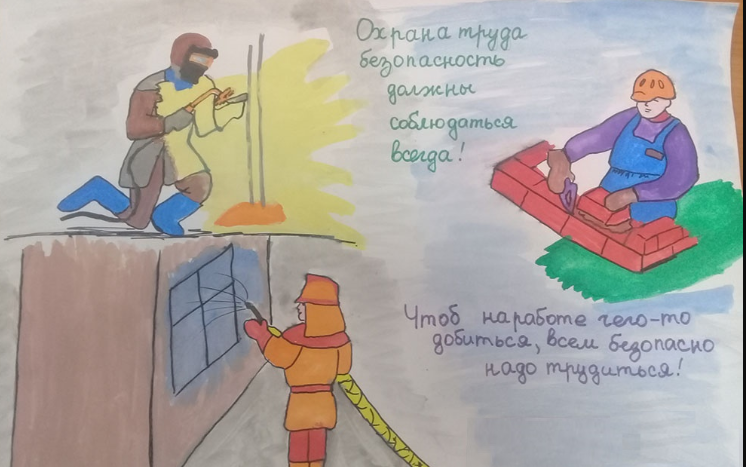 Охрана труда
безопасность
должны
соблюдаться
всегда!
Чтоб на работе чего-то
добиться, всем безопасно
надо трудиться!